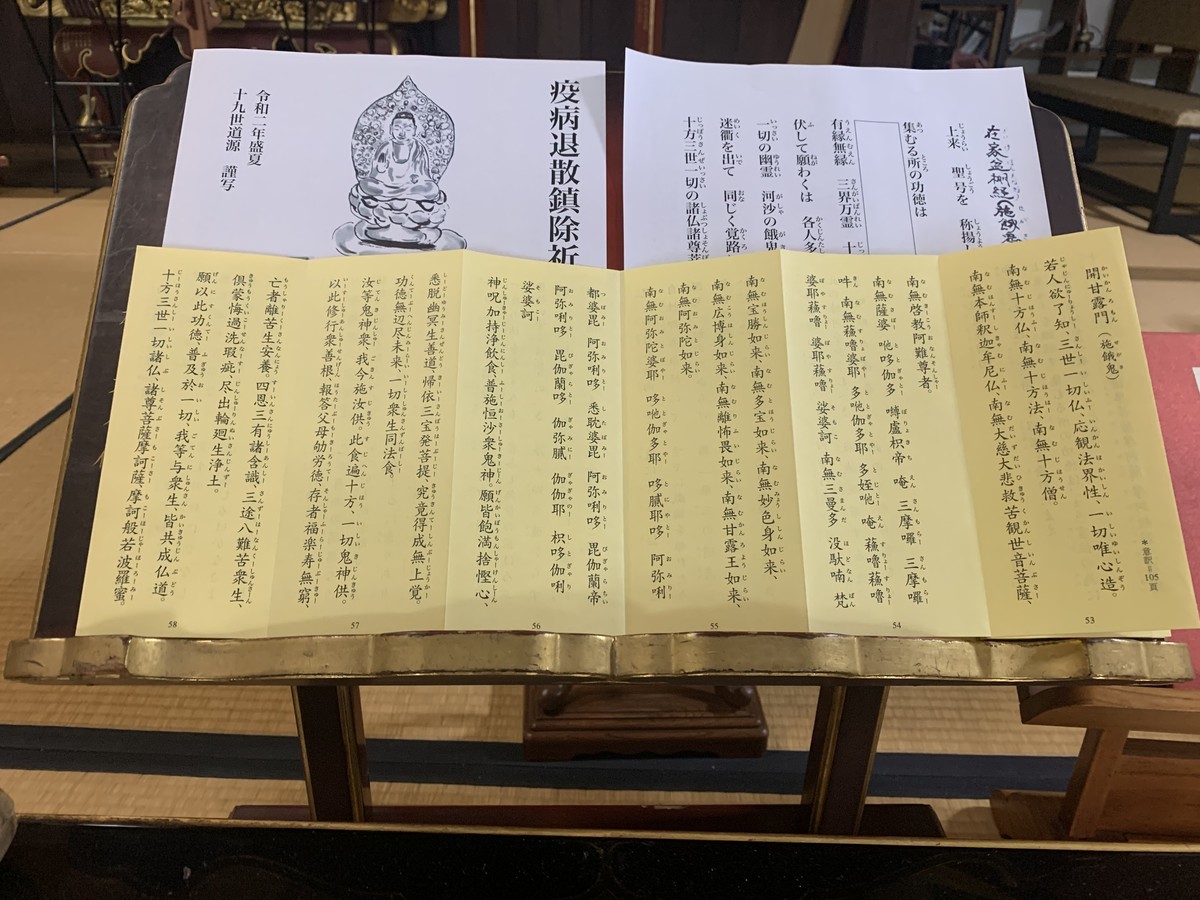 疫病退散鎮除祈
令和二年盛夏
十九世道源　謹写
上来　聖号を　称揚
集むる所の功徳は
有縁無縁　三界万霊　十
伏して願わくは　各人
一切の幽霊　河沙の餓鬼
迷衢を出て　同じく覚路
十方三世一切の諸仏諸尊菩
開甘露門（施餓鬼）
若人欲了知、三世一切仏応観法界性、一切唯心造。
南無十方仏、南無十方法、南無十方僧。
南無本師釈迦牟尼仏、南無大慈大悲救苦観世音菩薩、
＊意訳＝105頁
53
南無啓教阿難尊者。
南無薩婆　吔哆伽多　嚩盧枳帝　唵　三摩囉　三摩囉
吽　南無蘓嚕婆耶　多吔伽多耶　多姪吔　唵　蘓嚕蘓嚕
婆耶蘓嚕　婆耶蘓嚕　娑婆訶　南無三曼多　没駄喃　梵
54
南無宝勝如来、南無多宝如来、南無妙色身如来、
南無広博身如来、南無離怖畏如来、南無甘露王如来、
南無阿弥陀如来。
南無阿弥陀婆耶　哆吔伽多耶　哆膩耶哆　阿弥唎
55
都婆毘　阿弥唎哆　悉耽婆毘　阿弥唎哆　毘伽蘭帝
阿弥唎哆　毘伽蘭哆　伽弥膩　伽伽耶　枳哆伽唎
娑婆訶
神呪加持浄飲食、普施恒沙衆鬼神。願皆飽満捨慳心、
56
悉脱幽冥生善道、帰依三宝発菩提、究竟得成無上覚。
功徳無辺尽未来、一切衆生同法食、
汝等鬼神衆、我今施汝供。此食遍十方、一切鬼神供。
以此修行衆善根、報答父母劬労徳、存者福楽寿無窮、
57
亡者離苦生安養。四恩三有諸含識、三途八難苦衆生、
倶蒙悔過洗瑕疵、尽出輪廻生浄土。
願以此功徳、普及於一切、我等与衆生、皆共成仏道。
十方三世一切諸仏、諸尊菩薩摩訶薩、摩訶般若波羅蜜。
58